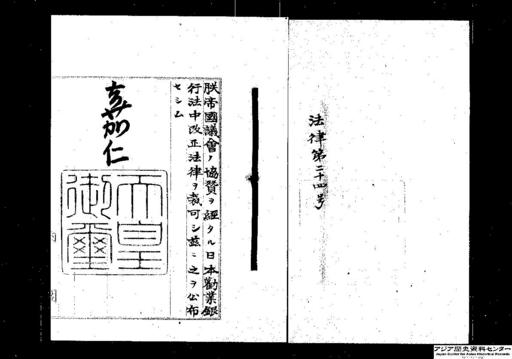 法律第二十四号
朕帝國議會ノ協賛ヲ經タル日本勸業銀
行法中改正法律ヲ裁可シ茲ニ之ヲ公布
セシム
嘉仁
天皇
御璽
アジア歴史資料センター
Japan Center for Asian Historical Records